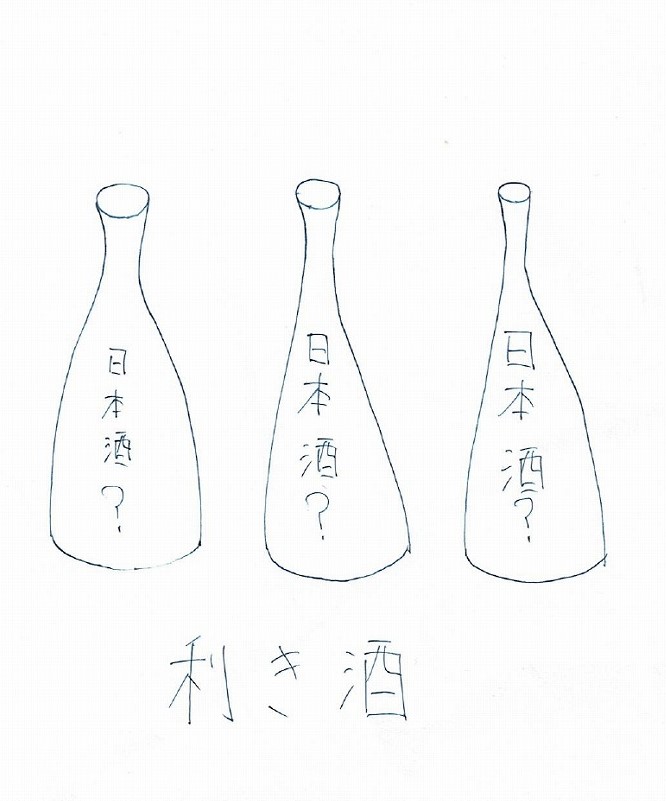 日本酒?
日本酒?
日本酒?
利き酒